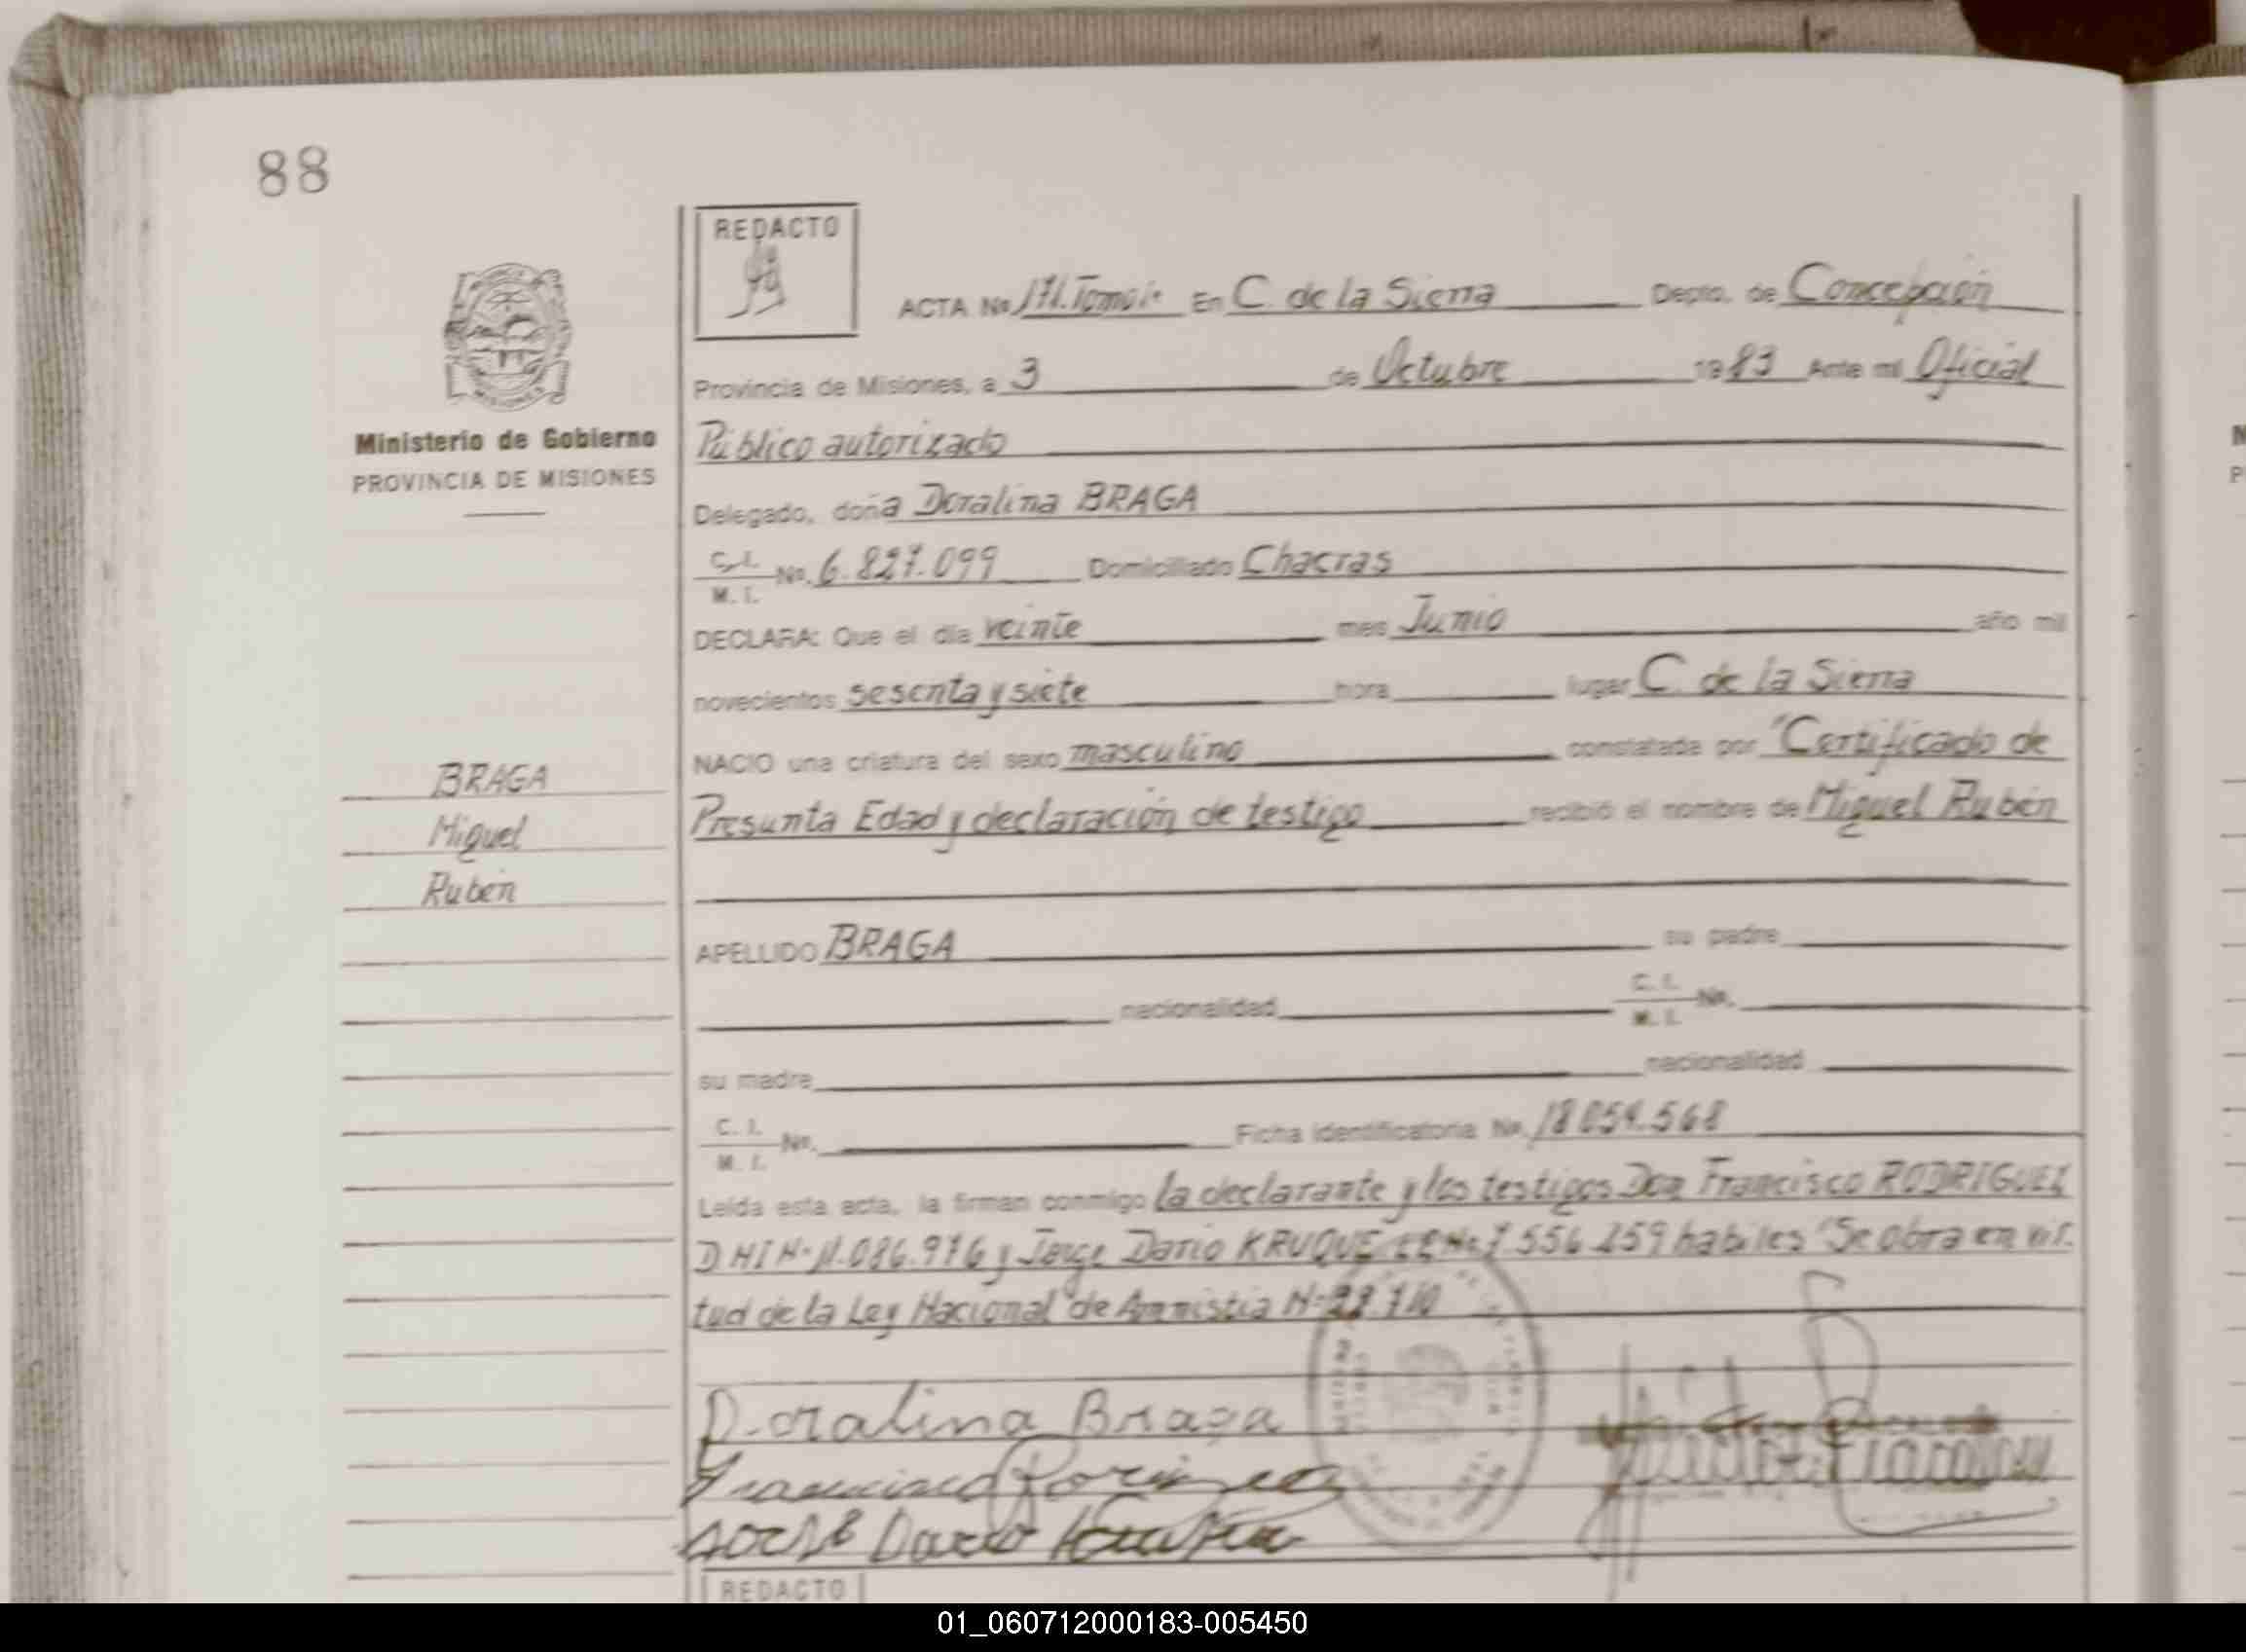 88
REDACTO
ACTA No 171. Tomo I° En C. de la Sierra Depto. de Concepción
Provincia de Misiones, a 3 de Octubre 1983 Ante mí Oficial
Ministerio de Gobierno
Público autorizado
PROVINCIA DE MISIONES
Delegado, doña Doralina BRAGA
C. I.
M. I.
No. 6.827.099 Domiciliado Chacras
DECLARA: Que el día veinte mes Junio año mil
novecientos sesenta y siete hora lugar C. de la Sierra
NACIO una criatura del sexo masculino constatada por "Certificado de
BRAGA
Presunta Edad y declaración de testigo recibió el nombre de Miguel Rubén
Miguel
Rubén
APELLIDO BRAGA su padre
nacionalidad C. I.
M. I. No.
su madre nacionalidad
C. I.
M. I. No. Ficha identificatoria No. 18.054.568
Leída esta acta, la firman conmigo la declarante y los testigos Don Francisco RODRIGUEZ
DNI N° 11.086.976 y Jorge Dario KRUQUE N° 7.556.259 habiles "Se obra en vir-
tud de la Ley Nacional de Amnistia N° 22.710
Doralina Braga
Francisco
Dario
REDACTO
01_060712000183-005450